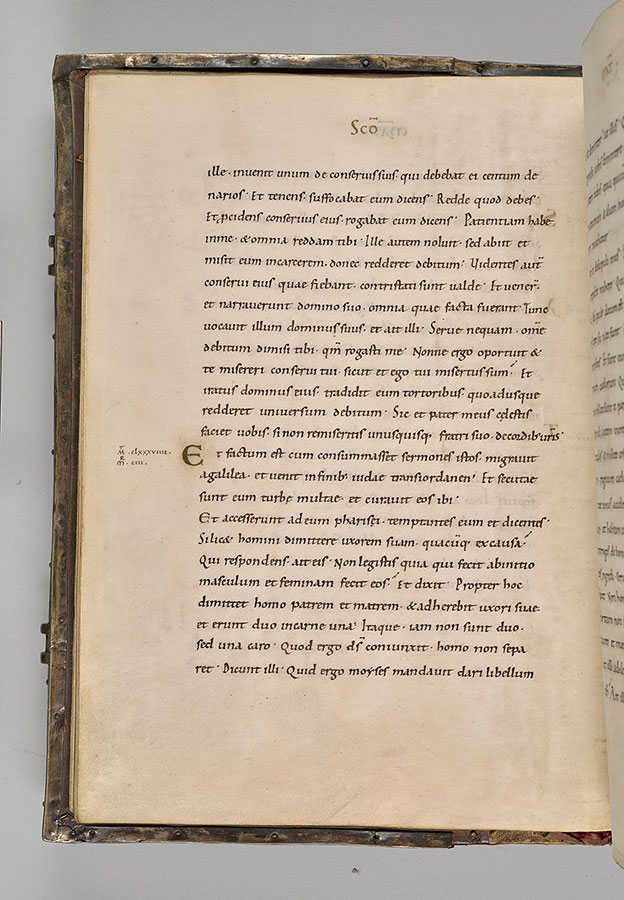 Scō
ille · invenit unum de conservis suis qui debebat ei centum de
narios · Et tenens suffocabat eum dicens · Redde quod debes ·
Et p̱cidens conservus eius · rogabat eum dicens · Patientiam habe
in me · & omnia reddam tibi · Ille autem noluit · sed abiit et
misit eum in carcerem · donec redderet debitum · Videntes aut̄
conservi eius quae fiebant · contristati sunt valde · Et vener̄
et narraverunt domino suo · omnia quae facta fuerant · Tunc
vocavit illum dominus suus · et ait illi · Serve nequam · om̄e
debitum dimisi tibi · qm̄ rogasti me · Nonne ergo oportuit &
te misereri conservi tui · sicut et ego tui misertus sum · Et
iratus dominus eius · tradidit eum tortoribus · quoadusque
redderet universum debitum · Sic et pater meus cęlestis
faciet vobis · si non remiseritis unusquisq; fratri suo · de cordib; vr̄is ·
Et factum est cum consummasset sermones istos · migravit
a galilea · et venit in finib; iudae trans iordanen · Et secutae
sunt eum turbę multae · et curavit eos ibi ·
Et accesserunt ad eum pharisei · temptantes eum et dicentes ·
Si lic& homini dimittere uxorem suam · quacūq; ex causa ·
Qui respondens · ait eis · Non legistis quia qui fecit ab initio
masculum et feminam fecit eos · Et dixit · Propter hoc
dimittet homo patrem et matrem · & adherebit uxori suae ·
et erunt duo in carne una · Itaque · iam non sunt duo ·
sed una caro · Quod ergo ds̄ coniunxit · homo non sepa
ret · Dicunt illi · Quid ergo moyses mandavit dari libellum